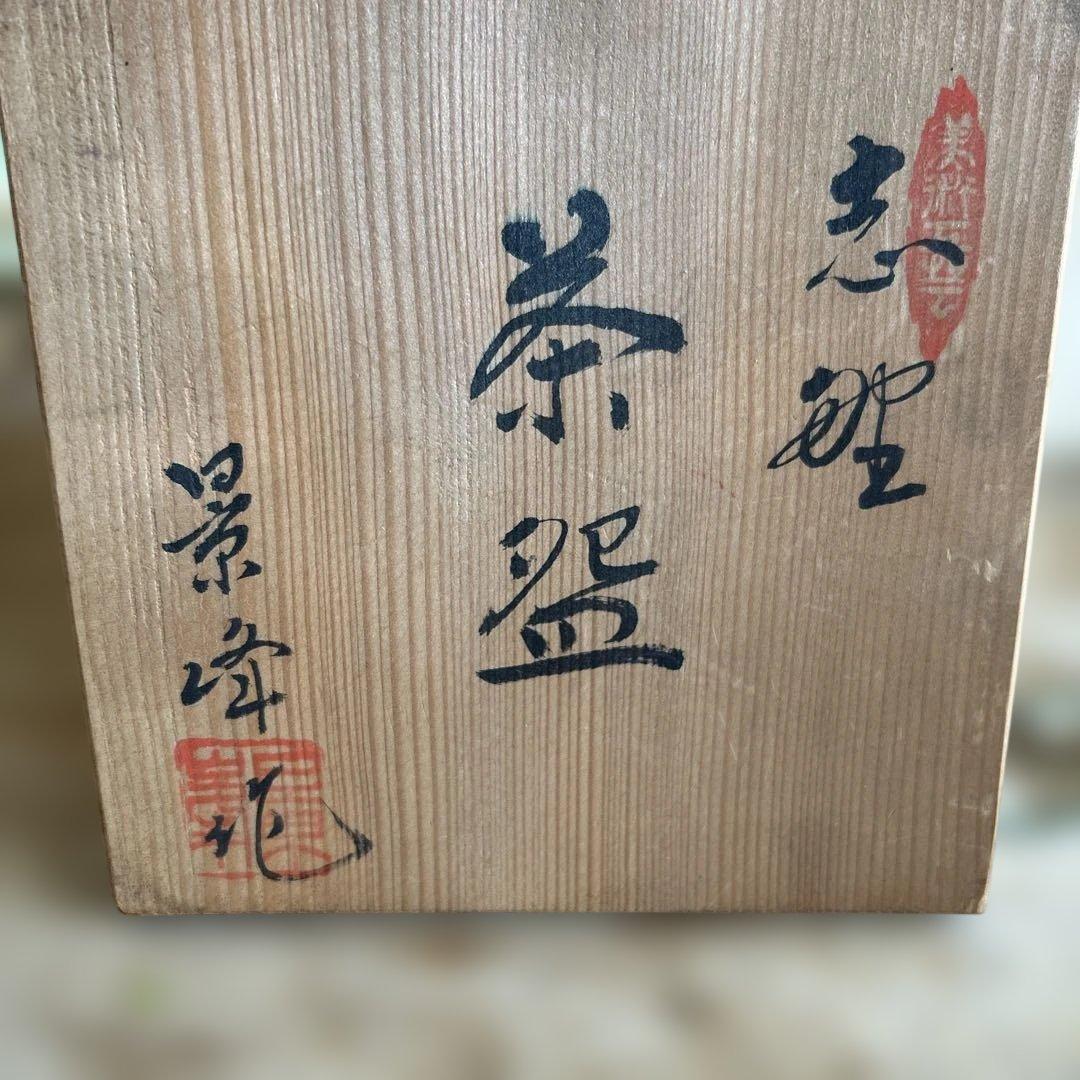 美術工芸
志野
茶盌
景峰作